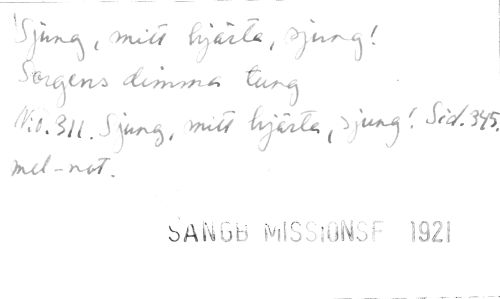 Sjung, mitt hjärta, sjung!
Sorgens dimma tung
N:o. 311. Sjung, mitt hjärta, sjung! Sid. 345.
mel-not.
SANGB MISSIONSF 1921